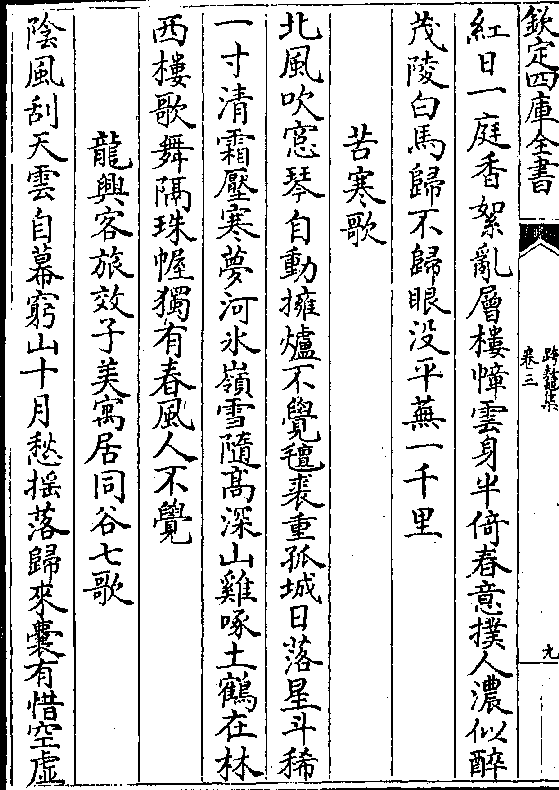 欽定四庫全書
跨鼇集
卷三
九
紅日一庭香絮亂層樓幛雲身半倚春意撲人濃似醉
茂陵白馬歸不歸眼沒平蕪一千里
苦寒歌
北風吹窓琴自動擁爐不覺氊裘重孤城日落星斗稀
一寸清霜壓寒夢河氷嶺雪隨髙深山雞啄土鶴在林
西樓歌舞隔珠幄獨有春風人不覺
龍興客旅效子美寓居同谷七歌
陰風刮天雲自幕窮山十月愁揺落歸來囊有惜空虛